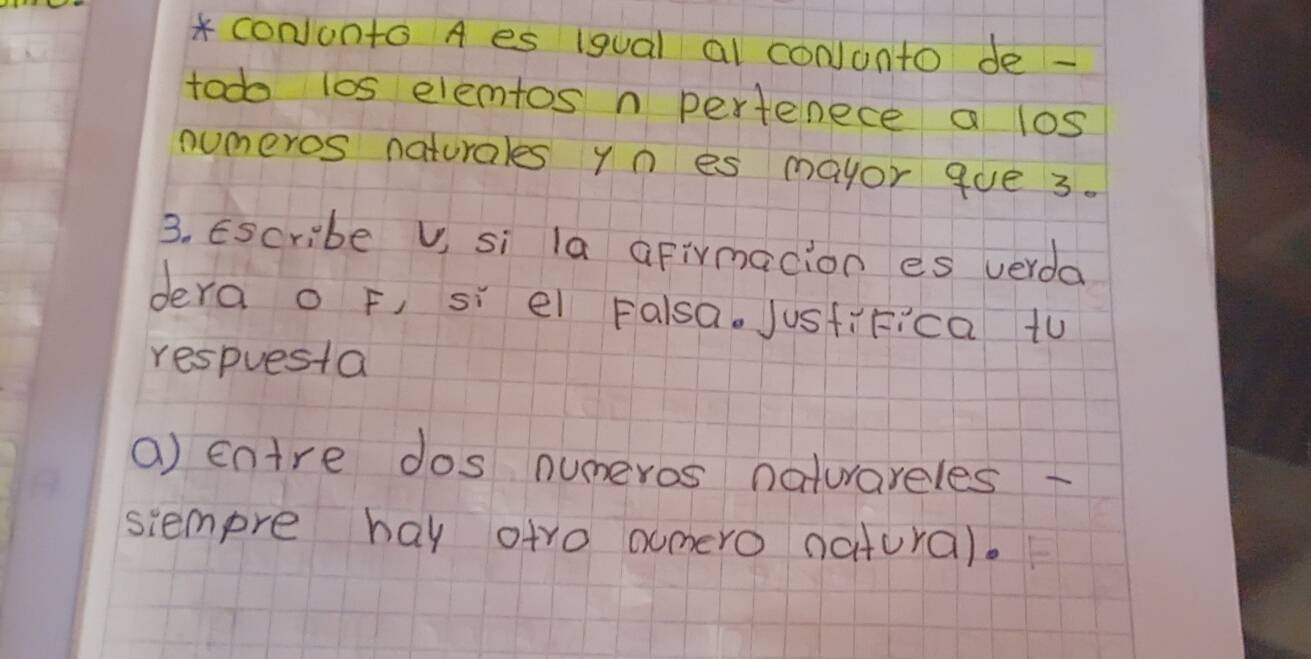 * conjunto A es igual al conjunto de -
todo los elemtos n pertenece a los
numeros naturales y n es mayor que 3.
3. Escribe V, si la afirmacion es verda
dera o F, si el Falsa. Justifica tu
respuesta
a) Entre dos numeros naturareles -
siempre hay otro numero natural. F